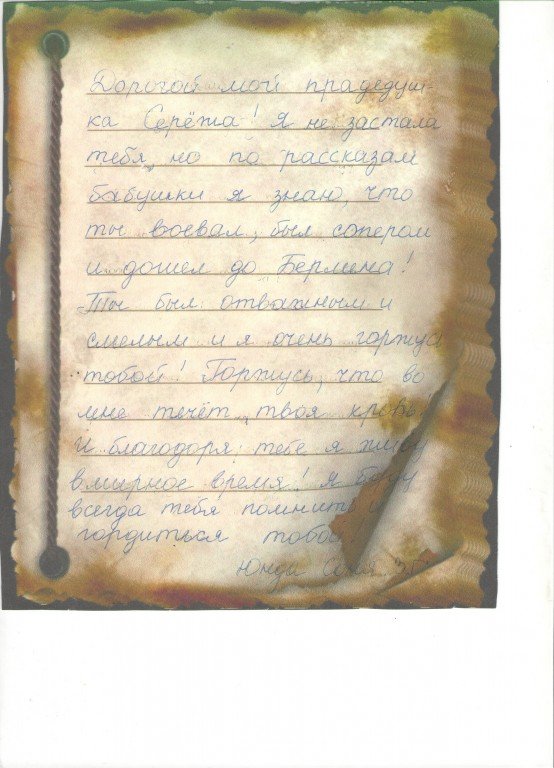 Дорогой мой прадедуш-
ка Серёжа! Я не застала
тебя, но по рассказам
бабушки я знаю, что
ты воевал, был сопером
и дошел до Берлина!
Ты был отважным и
смелым и я очень горжусь
тобой! Горжусь, что во
мне течёт твоя кровь!
И благодоря тебе я живу
в мирное время! Я буду
всегда тебя помнить и
гордиться тобой!
Юнда